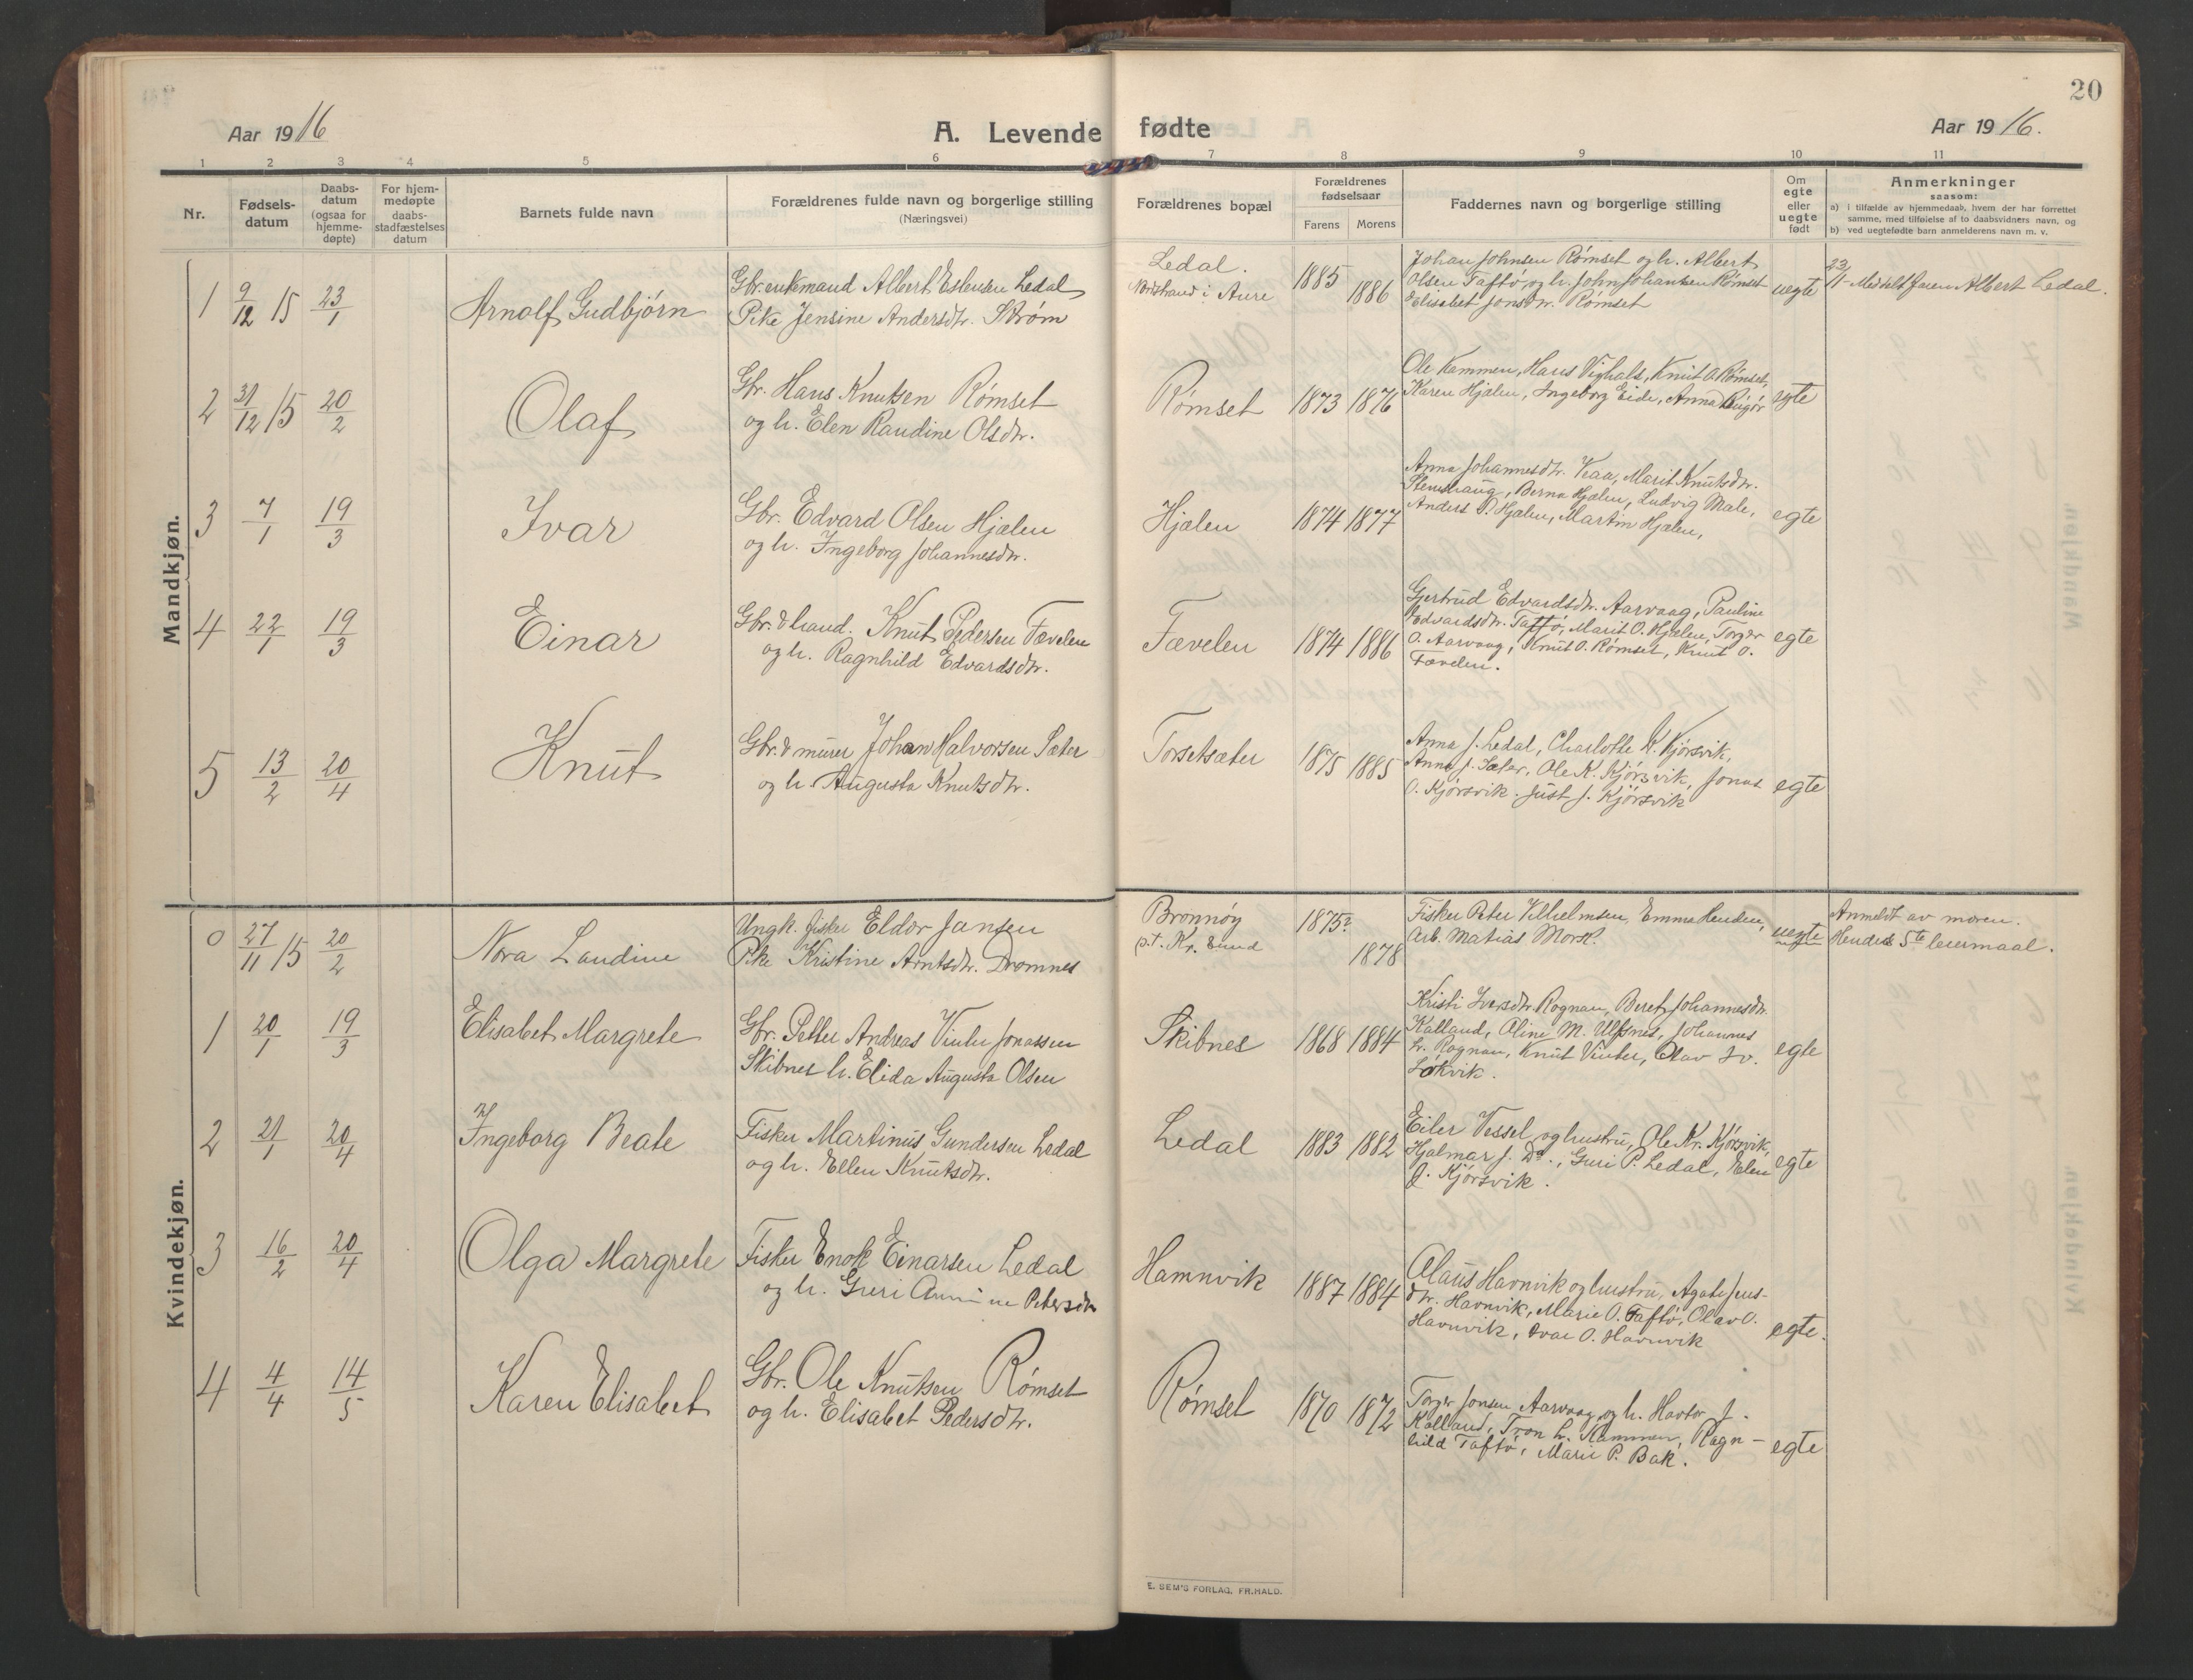 20
Aar 1916
A. Levende fødte
Aar 1916.
1 2 3 4 5 6 7 8 9 10 11
Nr.
Fødsels-
datum
Daabs-
datum
(ogsaa for
hjemme-
døpte)
For hjem-
medøpte
daabs-
stadfæstelses
datum
Barnets fulde navn
Forældrenes fulde navn og borgerlige stilling
(Næringsvei)
Forældrenes bopæl
Forældrenes
fødselsaar
Farens Morens
Faddernes navn og borgerlige stilling
Om
egte
eller
uegte
født
Anmerkninger
saasom:
a) i tilfælde av hjemmedaab, hvem der har forrettet
samme, med tilføielse af to daabsvidners navn, og
b) ved uegtefødte barn anmelderens navn m. v.
Mandkjøn.
1 9/12 15 23/1 Arnolf Gudbjørn
Gbr. enkemand Albert Estensen Ledal
Pike Jensine Andersdtr. Strøm
Ledal.
Nordstrand i Aure
1885 1886
Johan Johnsen Rømset og h. Albert
Olsen Taftø, og h. John Johansen Rømset
Elisabet Jonsdtr. Rømset
uegte
23/1 - Meldt faren Albert Ledal.
2 31/12 15 20/2 Olaf
Gbr. Hans Knutsen Rømset
og h. Elen Randine Olsdtr.
Rømset 1873 1876
Ole Kammen, Hans Vighals, Knut O. Rømset,
Karen Hjølen, Ingeborg Eide, Anna
egte
3 7/1 19/3 Ivar
Gbr. Edvard Olsen Hjælen
og h. Ingeborg Johannesdtr.
Hjælen 1874 1877
Anna Johannesdtr. Veaa, Marit Knutsdtr.
Stenshaug, Berna Hjælen, Ludvig Male,
Anders P. Hjælen, Martin Hjælen,
egte
4 22/1 19/3 Einar
Gbr. & hand. Knut Pedersen Fævelen
og h. Ragnhild Edvardsdtr.
Fævelen 1874 1886
Gjertrud Edvardsdtr. Aarvaag, Pauline
Edvardsdtr. Taftø, Marit O. Hjælen, Torger
O. Aarvaag, Knut O. Rømset, Knut O.
Fævelen.
egte
5 13/2 20/4 Knut
Gbr. & murer Johan Halvorsen Sæter
og h. Augusta Knutsdtr.
Torsetsæter 1875 1885
Anna J. Ledal, Charlotte K. Kjørsvik,
Anna J. Sæter, Ole K. Kjørsvik, Jonas
O. Kjørsvik. Just J. Kjørsvik
egte
Kvindekjøn.
0 27/11 15 20/2 Nora Landine
Ungk. fisker Eldor Jansen
Pike Kristine Arntsdtr. Dromnes
Brønnøy
p.t. Kr. Sund
1875? 1878
Fisker Peter Vilhelmsen, Emma Henden,
Arb. Matias Morsk.
uegte
Anmeldt av moren.
Hendes 5te leiermaal.
1 20/1 19/3 Elisabet Margrete
Gbr. Petter Andreas Vinter Jonassen
Skibnes h. Elida Augusta Olsen
Skibnes 1868 1884
Kristi Iversdtr. Rognan, Beret Johannesdtr.
Kalland, Aline M. Ulfsnes, Johannes
L. Rognan, Knut Vinter, Olav Iv.
Løkvik.
egte
2 21/1 20/4 Ingeborg Beate
Fisker Martinus Gundersen Ledal
og h. Ellen Knutsdtr.
Ledal 1883 1882
Eiler Vessel og hustru, Ole Kr. Kjørsvik,
Hjalmar J. Do., Guri P. Ledal, Elen
J. Kjørsvik.
egte
3 16/2 20/4 Olga Margrete
Fisker Enok Einarsen Ledal
og h. Guri Petersdtr
Hamnvik 1887 1884
Claus Havnvik og hustru, Agate Jens-
dtr. Havnvik, Marie O. Taftø, Olav O.
Havnvik, Ivar O. Havnvik
egte.
4 4/4 14/5 Karen Elisabet
Gbr. Ole Knutsen Rømset
og h. Elisabet Pedersdtr.
Rømset 1870 1872
Torger Jonsen Aarvaag og h. Havtor J.
Kalland, Tron L. Kammen, Ragn-
hild Taftø, Marie P. Bak.
egte
E. SEM'S FORLAG, FR.HALD.